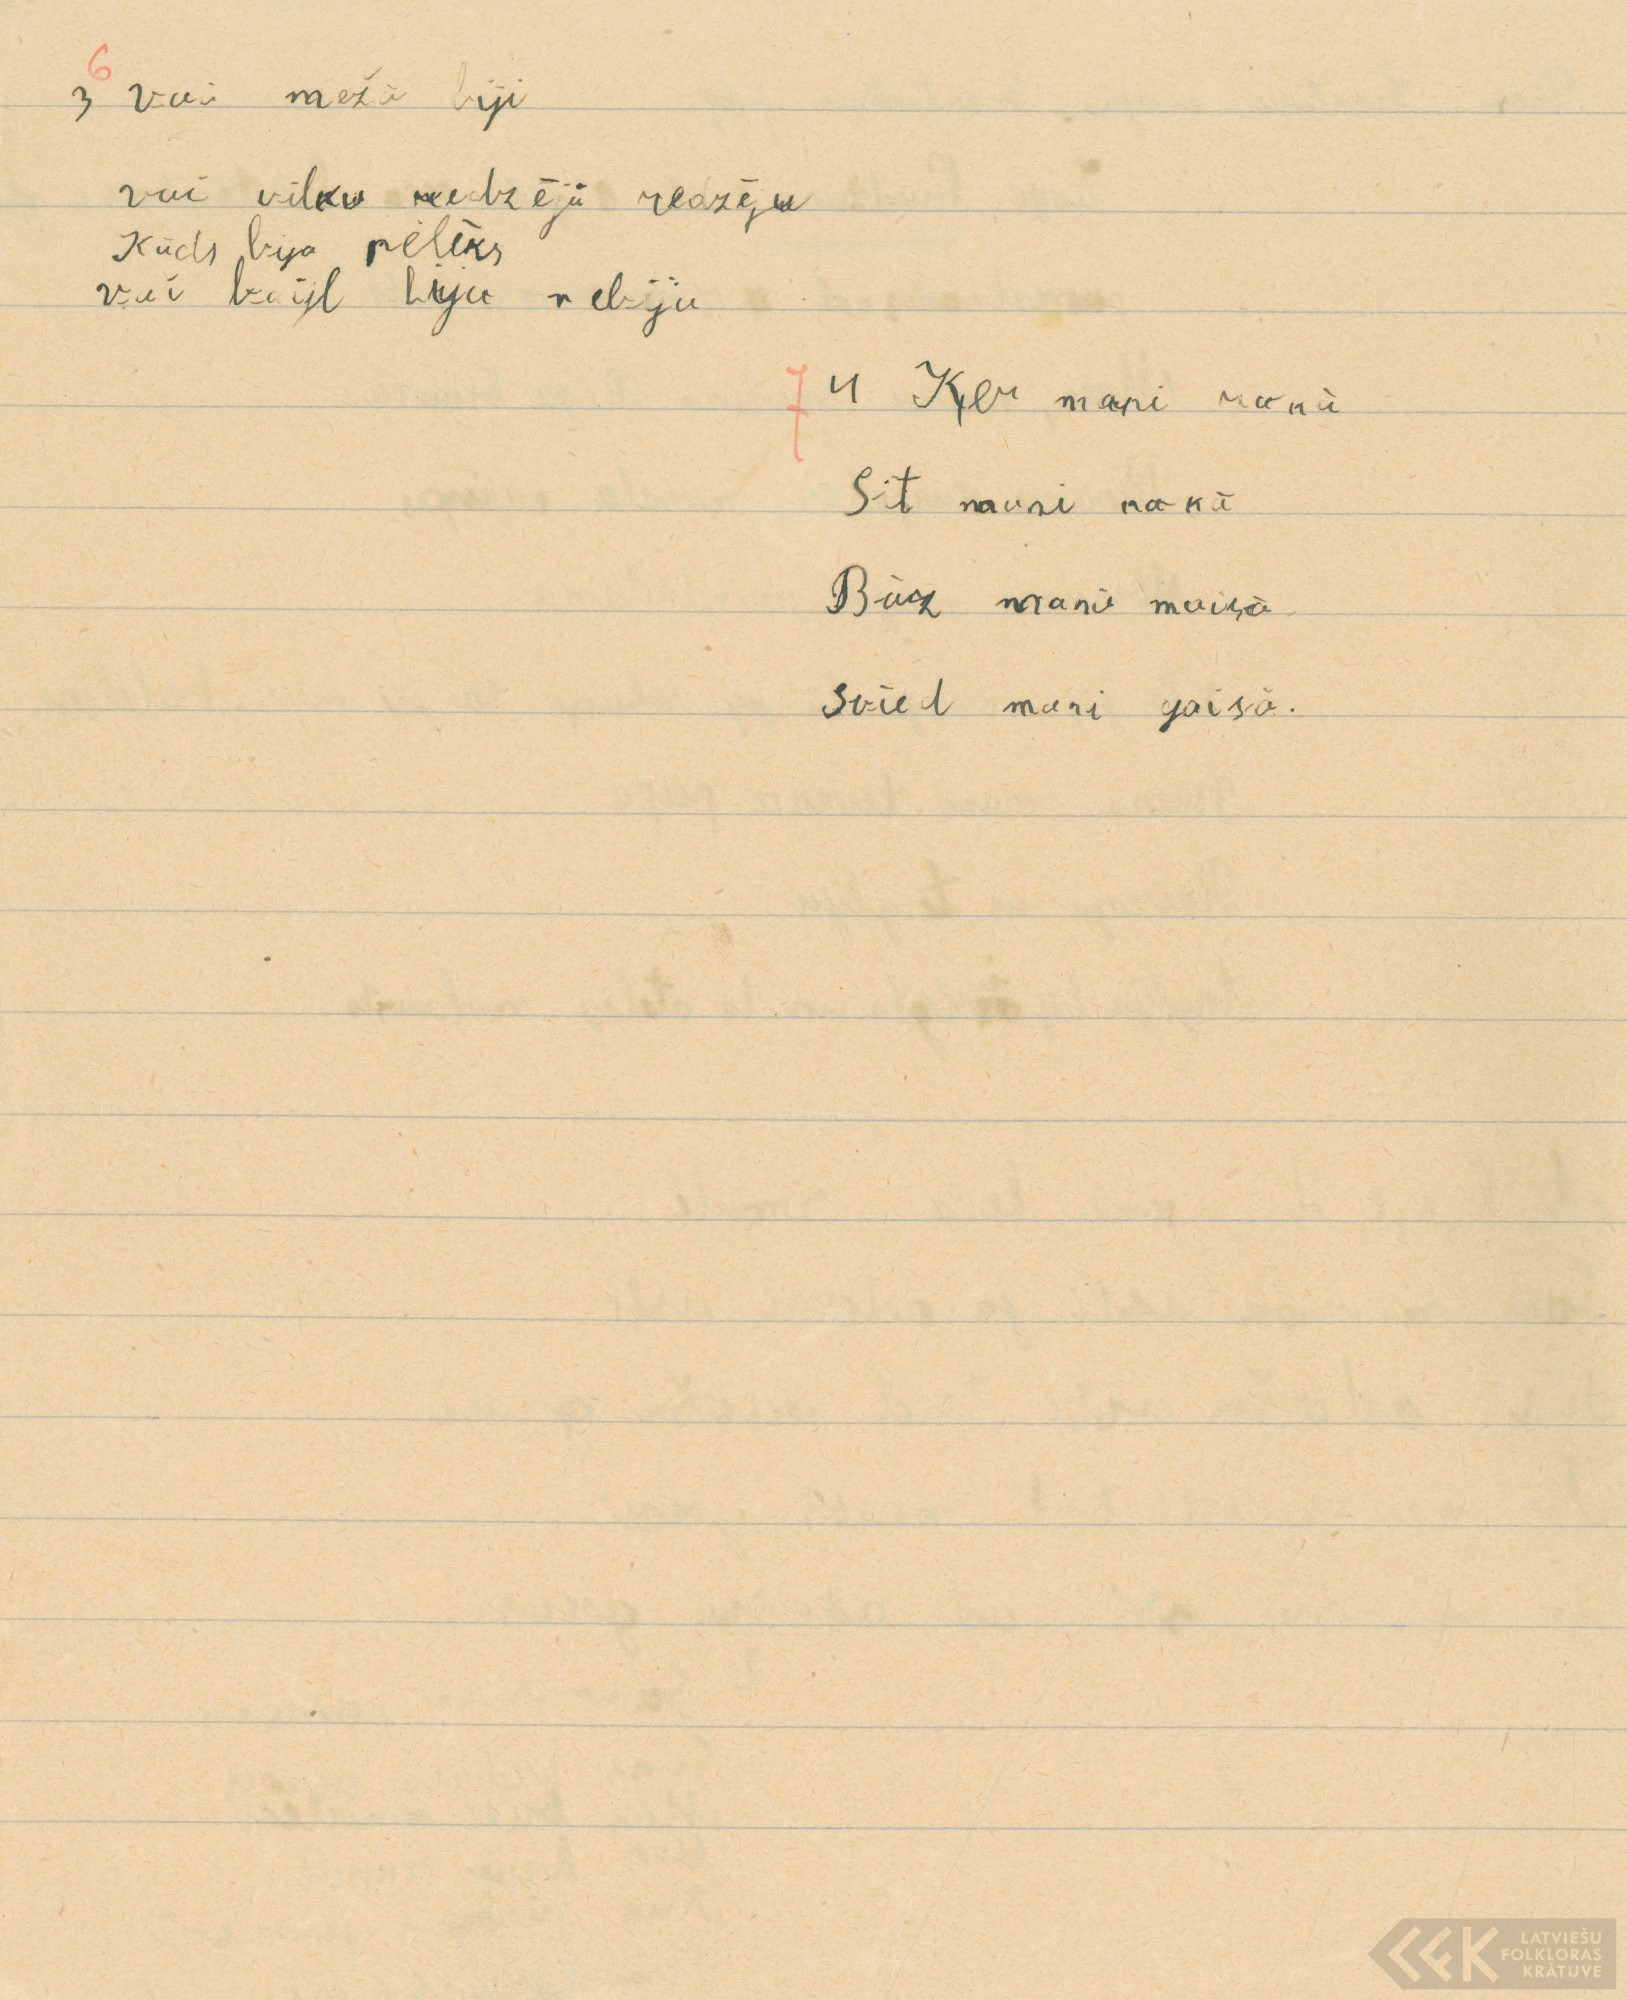 6
3 vai mežā biji
vai vilku redzēji redzēju
Kāds bija pēlēks
vai baijl bija nebiju
7 4 Ķer mani rokā
Sit mani rokā
Bāz mani maisā
svied mani gaisā.
LATVIEŠU
FOLKLORAS
KRĀTUVE